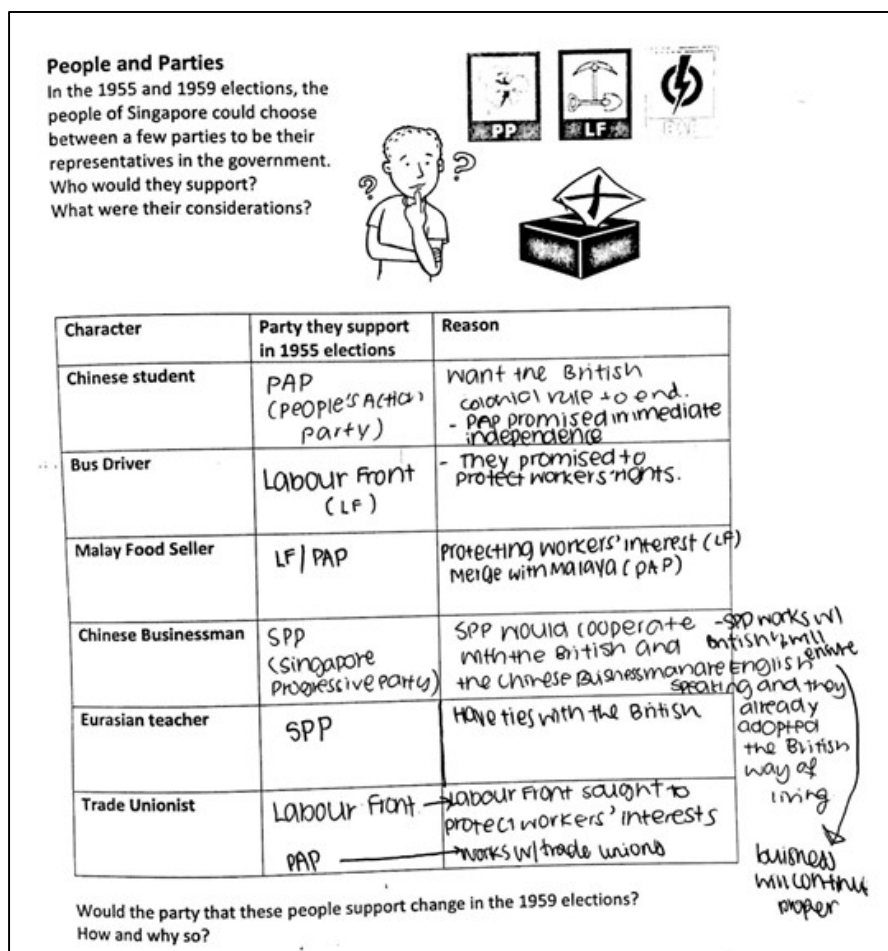 People and Parties
In the 1955 and 1959 elections, the
people of Singapore could choose
between a few parties to be their
representatives in the government.
Who would they support?
What were their considerations?
PP
LF
? ?
Character
Party they support
in 1955 elections
Reason
Chinese student
PAP
(People's Action
party)
want the British
colonial rule to end.
- PAP promised immediate
independence
Bus Driver
Labour Front
(LF)
- They promised to
protect workers' rights.
Malay Food Seller
LF / PAP
Protecting workers' interest (LF)
Merge with Malaya (PAP)
Chinese Businessman
SPP
(Singapore
Progressive Party)
SPP would cooperate
with the British and
the Chinese Buisnessman are English
speaking and they
already
adopted
the British
way of
living
- SPP works w/
British & will
ensure
buisness
will continue
proper
Eurasian teacher
SPP
Have ties with the British
Trade Unionist
Labour Front → Labour Front sought to
protect workers' interests
PAP → works w/ trade unions
Would the party that these people support change in the 1959 elections?
How and why so?